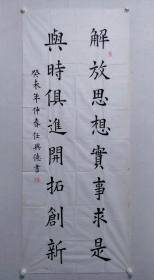 解放思想實事求是
與時俱進開拓創新
癸未年仲春任興儉書